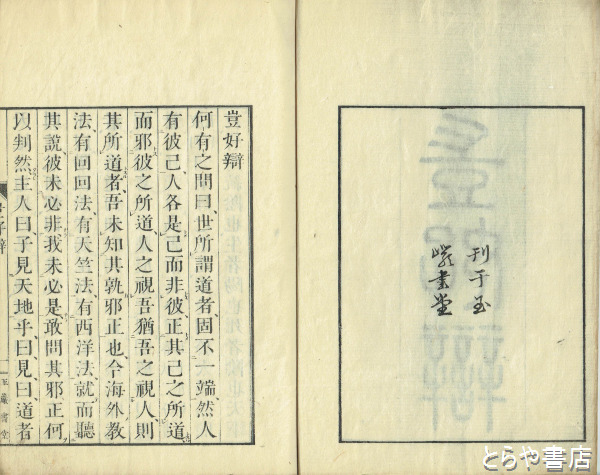 刊于玉
巖書堂
豈好辯
何有之問曰世所謂道者固不一端然人
有彼己人各是己而非彼正其己之所道
而邪彼之所道人之視吾猶吾之視人則
其所道者吾未知其孰邪正也今海外教
法有回回法有天竺法有西洋法就而聽
其說彼未必非我未必是敢問其邪正何
以判然主人曰子見天地乎曰見曰道者
豈好辯
玉巖書堂
とらや書店